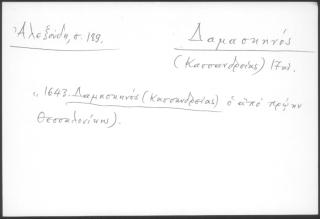 Ἀλεξούδη, σ. 199.
Δαμασκηνός
(Κασσανδρείας) 17αι.
1643. Δαμασκηνός (Κασσανδρείας) ὁ ἀπό πρώην
Θεσσαλονίκης).